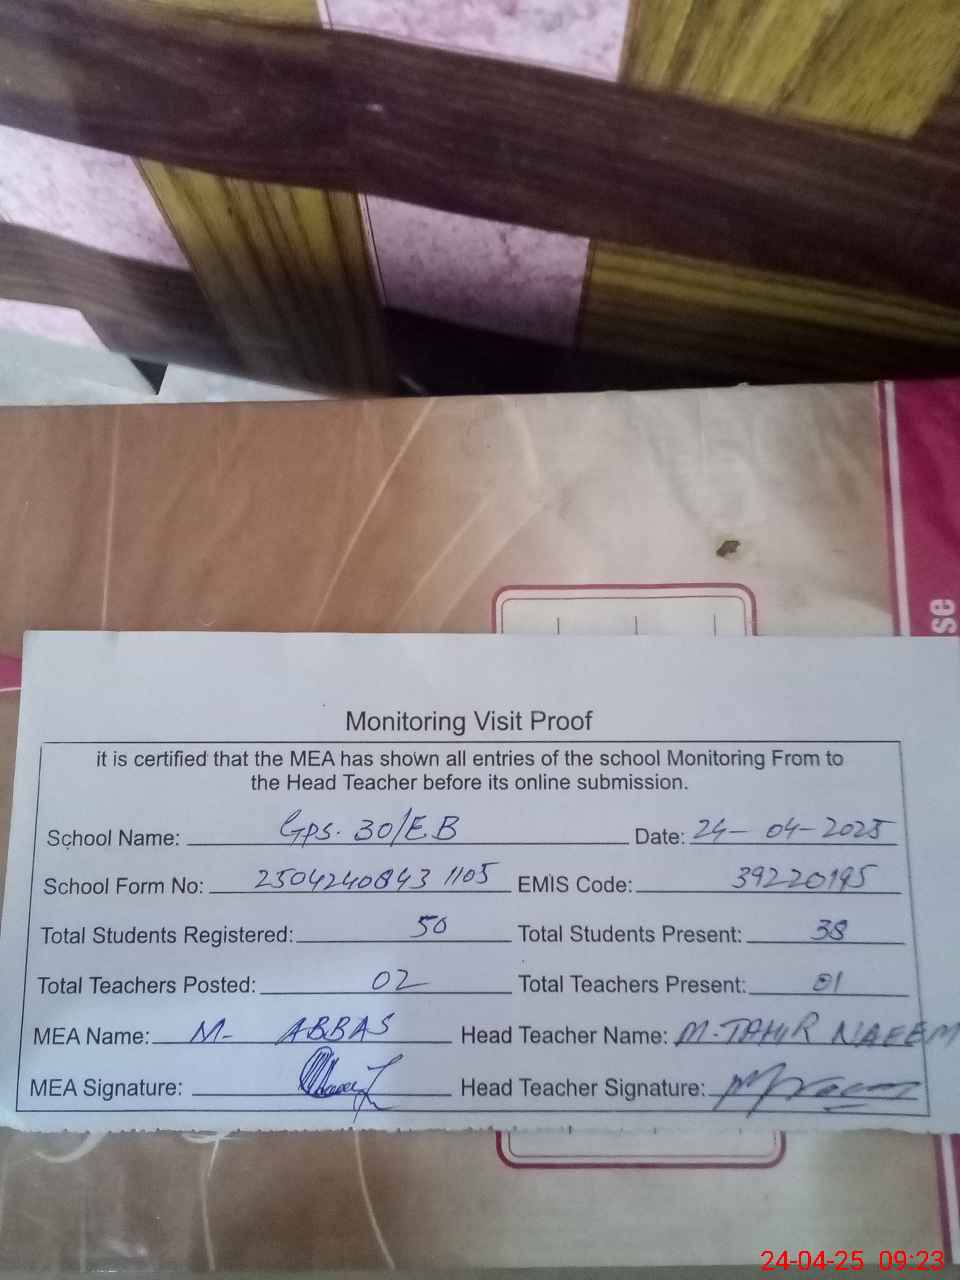 se
Monitoring Visit Proof
it is certified that the MEA has shown all entries of the school Monitoring From to
the Head Teacher before its online submission.
School Name: Gps. 30/EB Date: 24-04-2025
School Form No: 2504240843 1105 EMIS Code: 39220195
Total Students Registered: 50 Total Students Present: 38
Total Teachers Posted: 02 Total Teachers Present: 01
MEA Name: M- ABBAS Head Teacher Name: M. TAHIR NAEEM
MEA Signature: Head Teacher Signature:
24-04-25 09:23